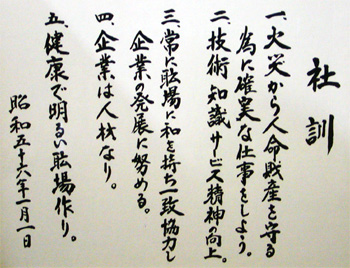 社訓
一、火災から人命財産を守る
為に確実な仕事をしよう。
二、技術知識サービス精神の向上。
三、常に職場に和を持ち一致協力し
企業の発展に努める。
四、企業は人材なり。
五、健康で明るい職場作り。
昭和五十六年一月一日